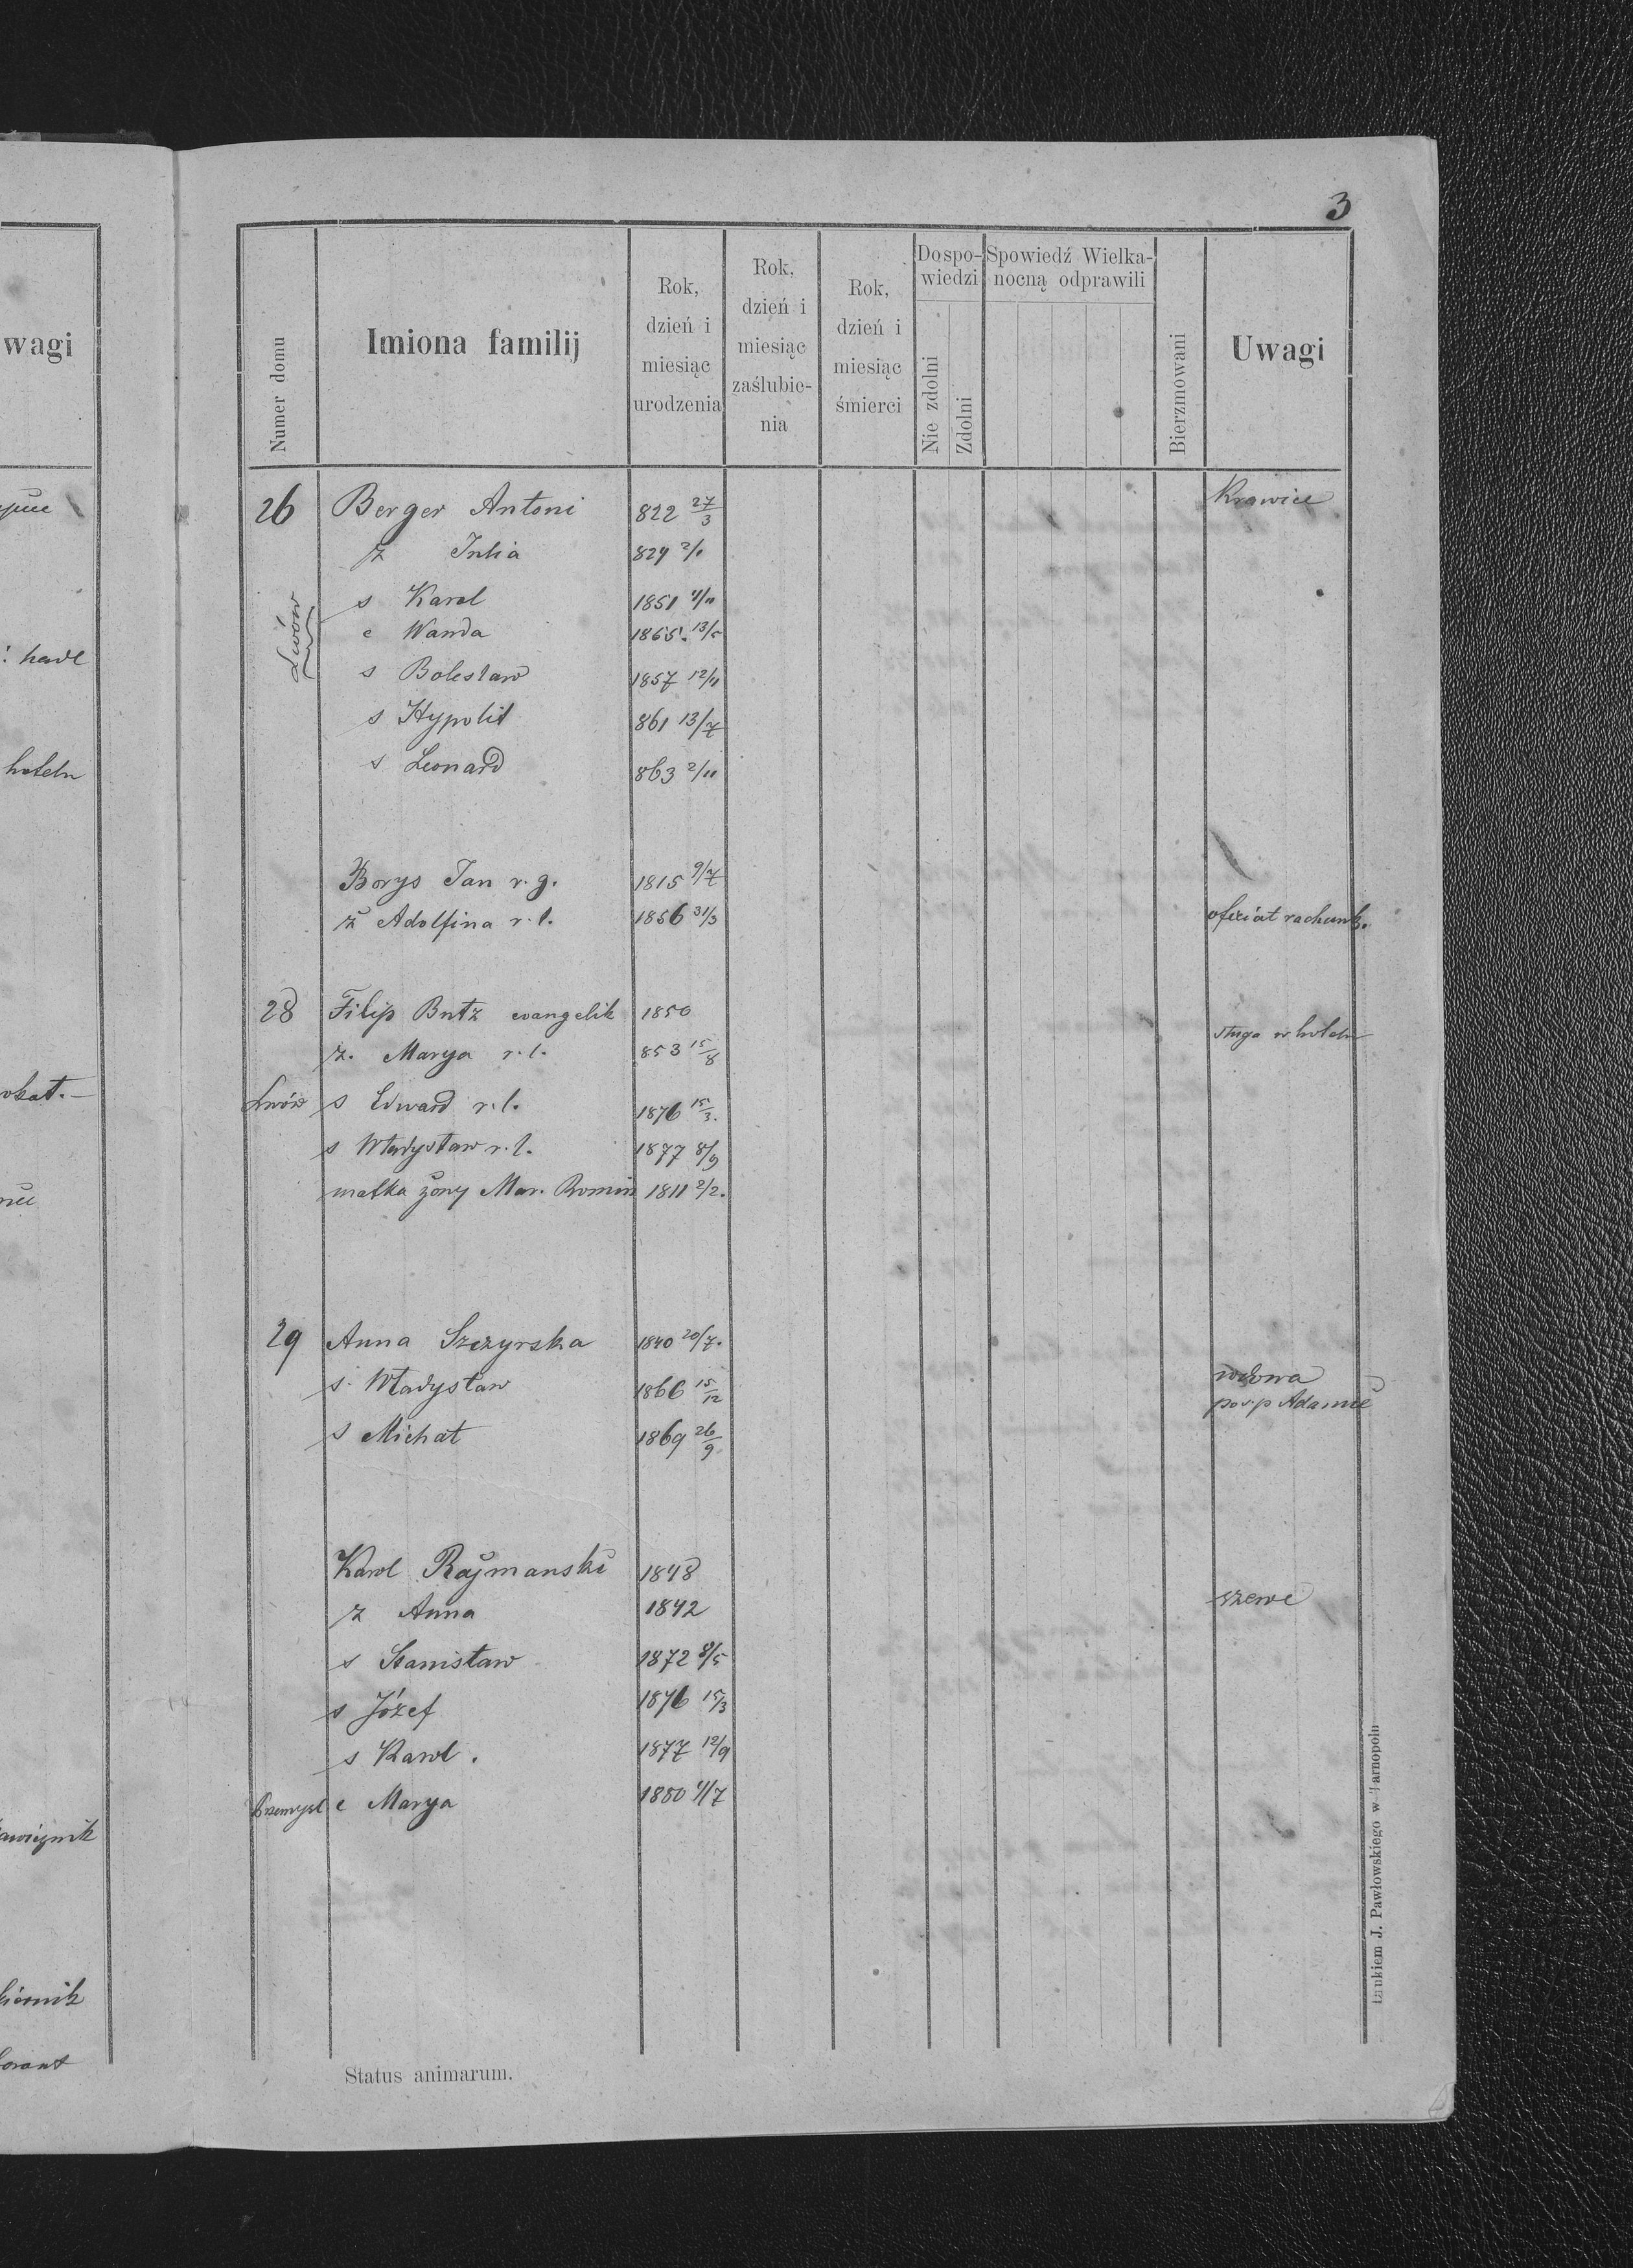 3
Numer domu
Imiona familij
Rok, dzień i miesiąc urodzenia
Rok, dzień i miesiąc zaślubienia
Rok, dzień i miesiąc śmierci
Do spowiedzi
Nie zdolni
Zdolni
Spowiedź Wielkanocną odprawili
Bierzmowani
Uwagi
wagi
26 Berger Antoni 822 27/3 Krawiec
ż Julia 829
Lwów
s Karol 1851
c Wanda 1865. 13/5
s Bolesław 1857 12/11
s Hypolit 861 13/7
s Leonard 863 2/11
Borys Jan r. g. 1815 9/7
ż Adolfina r. l. 1856 31/3 oficiał rachunk.
28 Filip Butz evangelik 1850
ż. Marya r. l. 853 15/8 sługa w hotelu
Lwów s Edward r. l. 1876 15/3.
s Władysław r. l. 1877 8/9
matka żony Mar. Romin 1811 2/2.
29 Anna Szczyrska 1840 20/7.
s. Władysław 1866 15/12 wdowa
po ś.p Adamie
s Michał 1869 26/9
Karol Rajmanski 1848
ż Anna 1842 szewc
s Stanisław 1872 8/5
s Józef 1876 15/3
s Karol. 1877 12/9
Przemyśl c Marya 1880
hotelu
Status animarum.
Drukiem J. Pawłowskiego w Tarnopolu